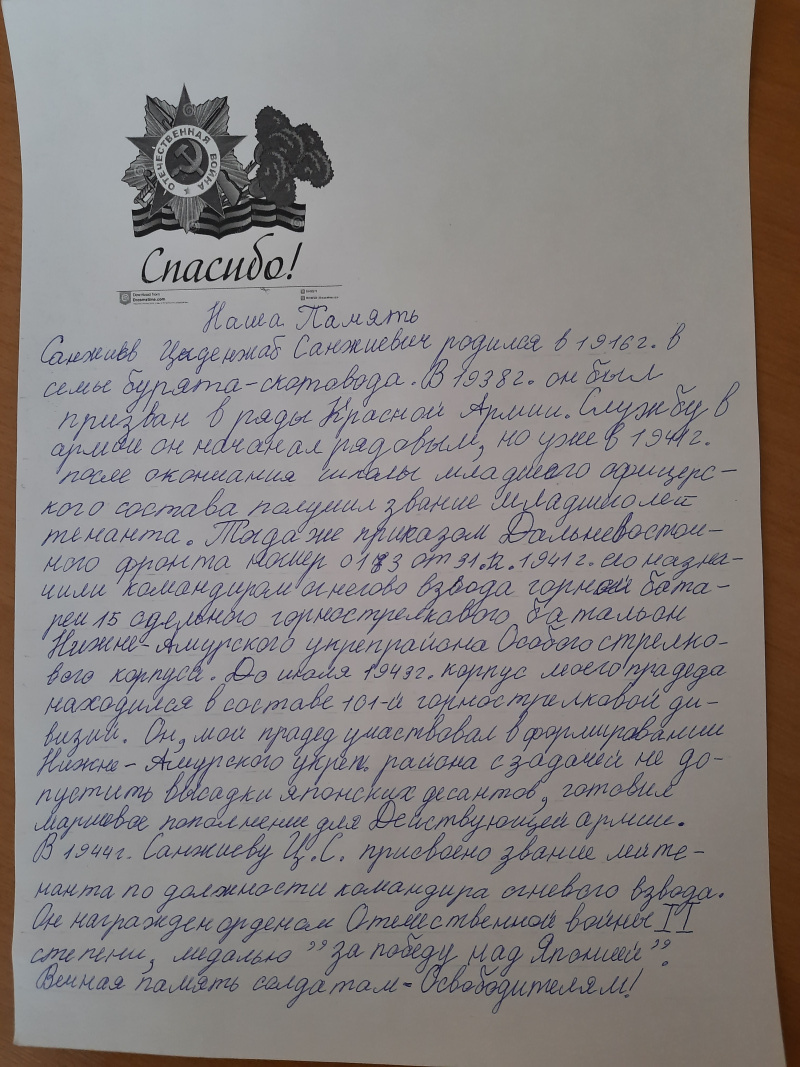 ОТЕЧЕСТВЕННАЯ ВОЙНА
Спасибо!
Dreamstime.com
Наша Память
Санжиев Цыденжаб Санжиевич родился в 1916 г. в
семье бурята-скотовода. В 1938 г. он был
призван в ряды Красной Армии. Службу в
армии он начанал рядовым, но уже в 1941 г.
после окончания школы младшего офицерс-
кого состава получил звание младший лей
тенанта. Тогда же приказом Дальневосточ-
ного фронта номер 0183 от 31.12.1941 г. его назна-
чили командирам огнегово взвода горной бата-
реи 15 одельного горнострелкового батальон
Нижне-Амурского укрепрайона Особого стрелко-
вого корпуса. До июля 1943 г. корпус моего прадеда
находился в составе 101-й горнострелковой ди-
визии. Он, мой прадед участвовал в формировании
Нижне-Амурского укреп. района с задачей не до-
пустить высадки японских десантов, готовил
маршевое пополнение для Действующей армии.
В 1944 г. Санжиеву Ц.С. присвоено звание лейте-
нанта по должности командира огневого взвода.
Он награжден орденом Отечественной войны II
степени, медалью "за победу над Японией".
Вечная память солдатам-Освободителям!